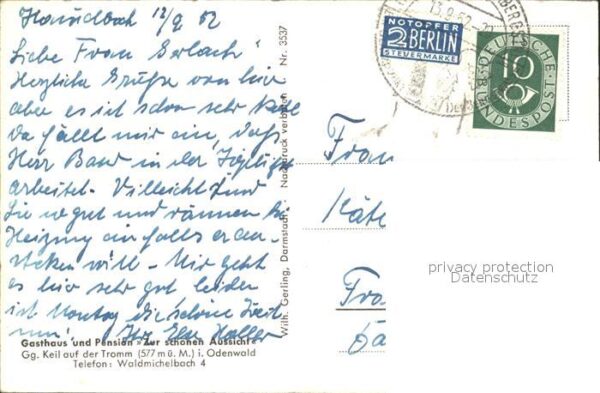 12/9 52
Liebe Frau Gerlach
Herzliche Grüße von hier
aber es ist schon sehr
Da fällt mir ein, daß
Herr Baur in der
arbeitet. Vielleicht sind
Sie so gut und räumen die
Heizung ein falls er an-
stecken will - Mir geht
es hier sehr gut leider
ist Montag die schöne Zeit
um! Ihre Else Haller
Gasthaus und Pension »Zur schönen Aussicht«
Gg. Keil auf der Tromm (577 m ü. M.) i. Odenwald
Telefon: Waldmichelbach 4
Wilh. Gerling, Darmstadt. Nachdruck verboten Nr. 3537
13.9.52
NOTOPFER
2 BERLIN
STEUERMARKE
DEUTSCHE BUNDESPOST
10
Frau
Käte
privacy protection
Datenschutz